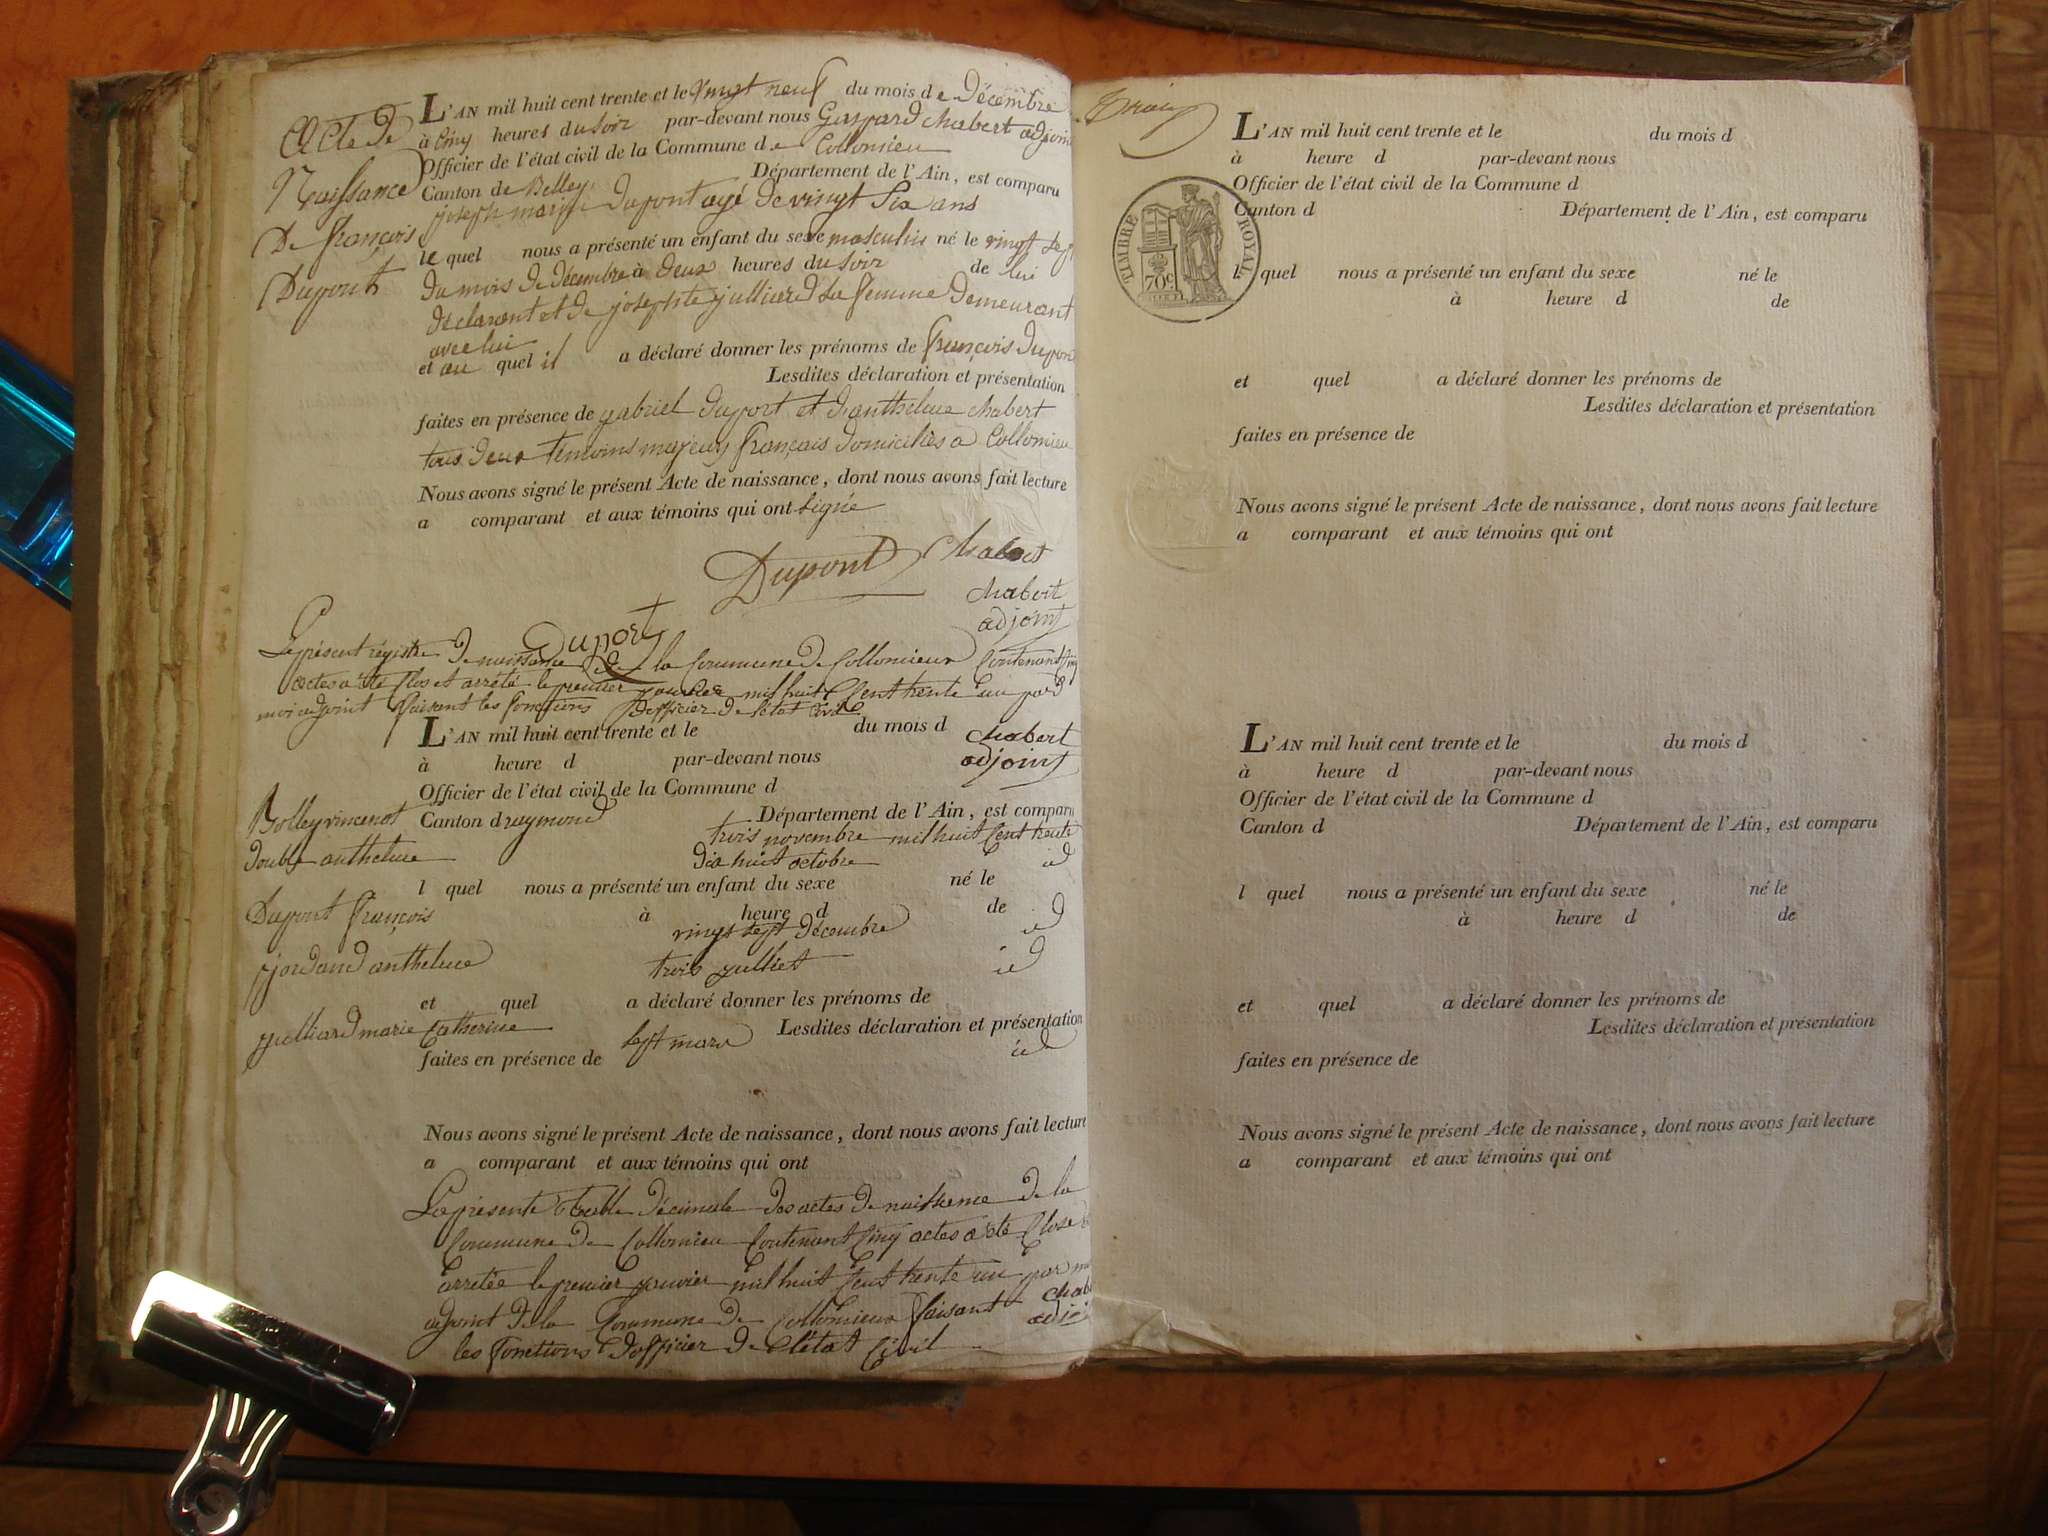 Acte de
Naissance
De françois
Dupont
L'AN mil huit cent trente et le vingt neuf du mois de Décembre
à Cinq heures du soir par-devant nous Gaspard Chabert adjoint
Officier de l'état civil de la Commune de Collomieu
Canton de Belley Département de l'Ain, est comparu
joseph marie Dupont agé de vingt Six ans
le quel nous a présenté un enfant du sexe masculin né le vingt sept
du mois de décembre à deux heures du soir de lui
déclarent et de josephte julliard Sa femme demeurant
avec lui
et au quel il a déclaré donner les prénoms de françois Dupont
Lesdites déclaration et présentation
faites en présence de gabriel Duport et d'anthelme chabert
tous deux temoins majeurs français domiciliès a Collomieu
Nous avons signé le présent Acte de naissance, dont nous avons fait lecture
a comparant et aux témoins qui ont signé
Dupont Chabert
chabert
adjoint
Duport
Le présent régistre de naissance de la Commune de Collomieux Contenant Cinq
actes a été Clos et arrêté le premier janvier mil huit Cent trente un par
moi adjoint faisant les fonctions d'officier de l'état Civil
L'AN mil huit cent trente et le du mois d
chabert
adjoint
à heure d par-devant nous
Officier de l'état civil de la Commune d
Canton d Département de l'Ain, est comparu
Bolley vincent raymond trois novembre mil huit Cent trente
double anthelme dix huit octobre id
l quel nous a présenté un enfant du sexe né le
à heure d de
Dupont françois vingt sept décembre id
jordand anthelme trois julliet id
et quel a déclaré donner les prénoms de
Lesdites déclaration et présentation
julliard marie Catherine sept mars id
faites en présence de
Nous avons signé le présent Acte de naissance, dont nous avons fait lecture
a comparant et aux témoins qui ont
La présente table décimale des actes de naissence de la
Commune de Collomieu Contenant Cinq actes a été Close
arretée le premier janvier mil huit Cent trente un par
adjoint de la Commune de Collomieux faisant
les fonctions d'officier de l'état Civil
L'AN mil huit cent trente et le du mois d
à heure d par-devant nous
Officier de l'état civil de la Commune d
Canton d Département de l'Ain, est comparu
TIMBRE ROYAL
70c
l quel nous a présenté un enfant du sexe né le
à heure d de
et quel a déclaré donner les prénoms de
Lesdites déclaration et présentation
faites en présence de
Nous avons signé le présent Acte de naissance, dont nous avons fait lecture
a comparant et aux témoins qui ont
L'AN mil huit cent trente et le du mois d
à heure d par-devant nous
Officier de l'état civil de la Commune d
Canton d Département de l'Ain, est comparu
l quel nous a présenté un enfant du sexe né le
à heure d de
et quel a déclaré donner les prénoms de
Lesdites déclaration et présentation
faites en présence de
Nous avons signé le présent Acte de naissance, dont nous avons fait lecture
a comparant et aux témoins qui ont